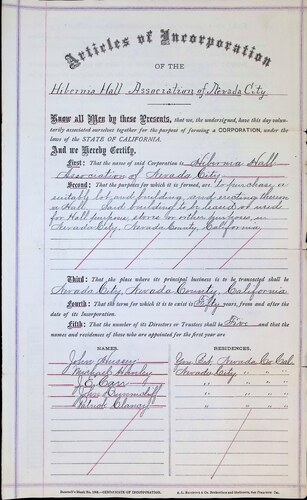 Articles of Incorporation
OF THE
Hibernia Hall Association of Nevada City
Know all Men by these Presents, that we, the undersigned, have this day volun-
tarily associated ourselves together for the purpose of forming a CORPORATION, under the
laws of the STATE OF CALIFORNIA.
And we Hereby Certify.
First: That the name of said Corporation is Hibernia Hall
Association of Nevada City
Second: That the purposes for which it is formed, are to purchase a
suitable lot and building, and erecting thereon
a Hall. Said building to be leased or used
for Hall purposes, stores or other purposes, in
Nevada City, Nevada County, California
Third: That the place where its principal business is to be transacted shall be
Nevada City, Nevada County, California
Fourth: That the term for which it is to exist is Fifty years, from and after the
date of its Incorporation.
Fifth: That the number of its Directors or Trustees shall be Five and that the
names and residences of those who are appointed for the first year are
NAMES. RESIDENCES.
John Hussey You Bet Nevada Co Cal
Michael Hanley Nevada City " " "
J. E. Carr " " " "
John " " " "
Patrick Clancy " " " "
No. —CERTIFICATE OF INCORPORATION.